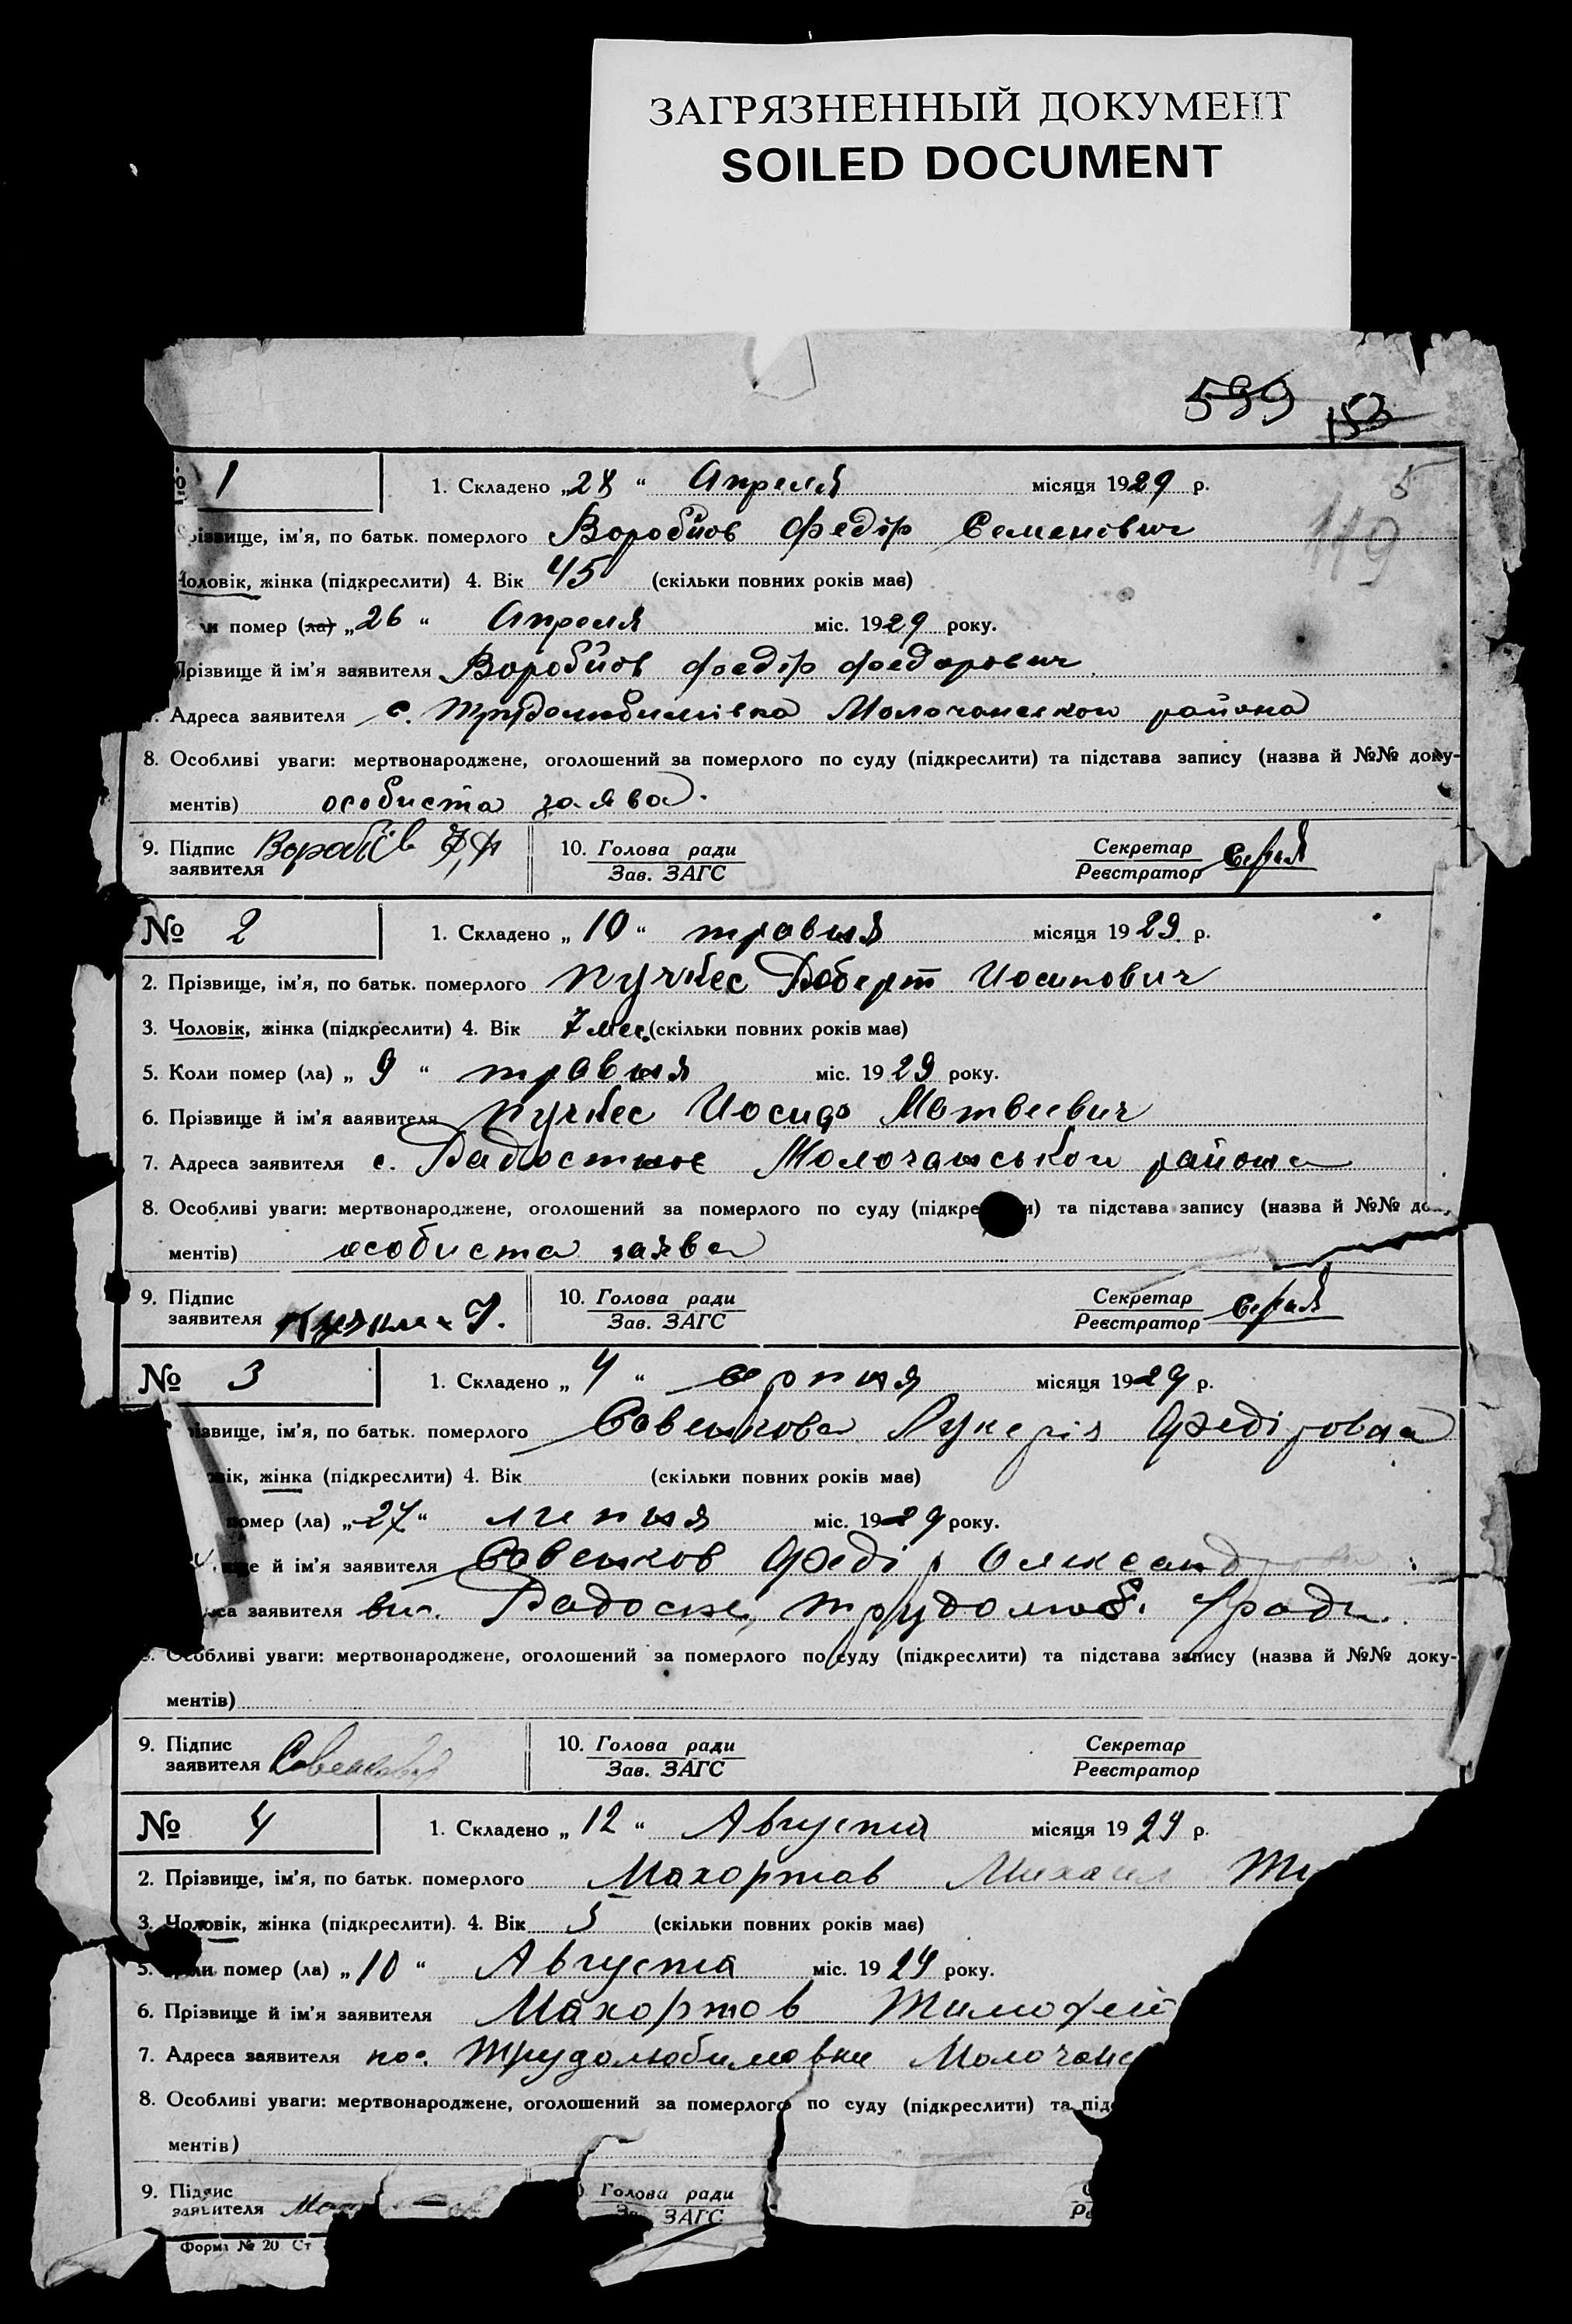 ЗАГРЯЗНЕННЫЙ ДОКУМЕНТ
SOILED DOCUMENT
599 153
№ 1 1. Складено „28“ Апреля місяця 1929 р. 5
різвище, ім'я, по батьк. померлого Воробйов Федір Семенович 119
Чоловік, жінка (підкреслити) 4. Вік 45 (скільки повних років має)
ли помер (ла) „26“ Апреля міс. 1929 року.
Прізвище й ім'я заявителя Воробйов Федір Федорович
7. Адреса заявителя с. Трудолюбимівка Молочанского района
8. Особливі уваги: мертвонароджене, оголошений за померлого по суду (підкреслити) та підстава запису (назва й №№ доку-
ментів) особиста заява.
9. Підпис Воробйов 10. Голова ради Секретар
заявителя Зав. ЗАГС Реєстратор
№ 2 1. Складено „10“ травня місяця 1929 р.
2. Прізвище, ім'я, по батьк. померлого Роберт Иосипович
3. Чоловік, жінка (підкреслити) 4. Вік 7 мес. (скільки повних років має)
5. Коли помер (ла) „9“ травня міс. 1929 року.
6. Прізвище й ім'я заявителя Иосиф Матвеевич
7. Адреса заявителя с. Радостное Молочанського района
8. Особливі уваги: мертвонароджене, оголошений за померлого по суду (підкре и) та підстава запису (назва й №№ доку-
ментів) особиста заява
9. Підпис 10. Голова ради Секретар
заявителя Зав. ЗАГС Реєстратор
№ 3 1. Складено „4“ серпня місяця 1929 р.
різвище, ім'я, по батьк. померлого Совенкова Лукерія Федіровна
овік, жінка (підкреслити) 4. Вік (скільки повних років має)
помер (ла) „27“ липня міс. 1929 року.
ще й ім'я заявителя Совенков Федір Олександрови
еса заявителя Трудолюб. с/ради
8. Особливі уваги: мертвонароджене, оголошений за померлого по суду (підкреслити) та підстава запису (назва й №№ доку-
ментів)
9. Підпис Совенков 10. Голова ради Секретар
заявителя Зав. ЗАГС Реєстратор
№ 4 1. Складено „12“ Августа місяця 1929 р.
2. Прізвище, ім'я, по батьк. померлого Махортов Михаил Ти
3. Чоловік, жінка (підкреслити). 4. Вік 5 (скільки повних років має)
5. Коли помер (ла) „10“ Августа міс. 1929 року.
6. Прізвище й ім'я заявителя Махортов Тимофей
7. Адреса заявителя пос. Трудолюбимовки Молочанс
8. Особливі уваги: мертвонароджене, оголошений за померлого по суду (підкреслити) та підс
ментів)
9. Підпис Голова ради
заявителя Зав. ЗАГС Ре
Форма № 20 Ст